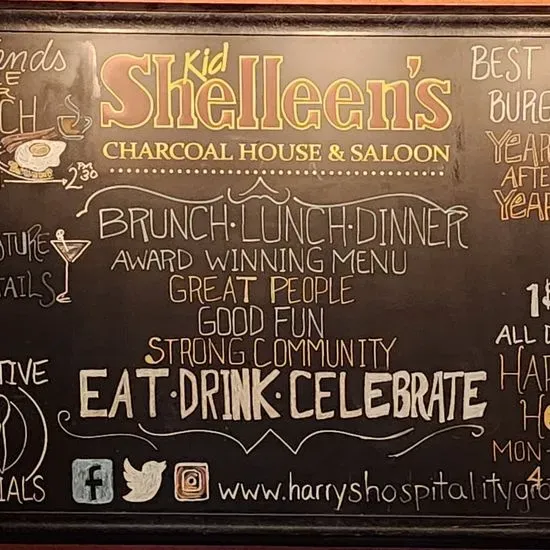 Kid
Shelleen's
CHARCOAL HOUSE & SALOON
BRUNCH·LUNCH·DINNER
AWARD WINNING MENU
GREAT PEOPLE
GOOD FUN
STRONG COMMUNITY
EAT·DRINK·CELEBRATE
www.harryshospitalitygro
ends
CH
2 PM 30
TURE
TAILS
TIVE
IALS
BEST
BURG
YEAR
AFTE
YEAR
ALL D
HAP
H
MON-
4